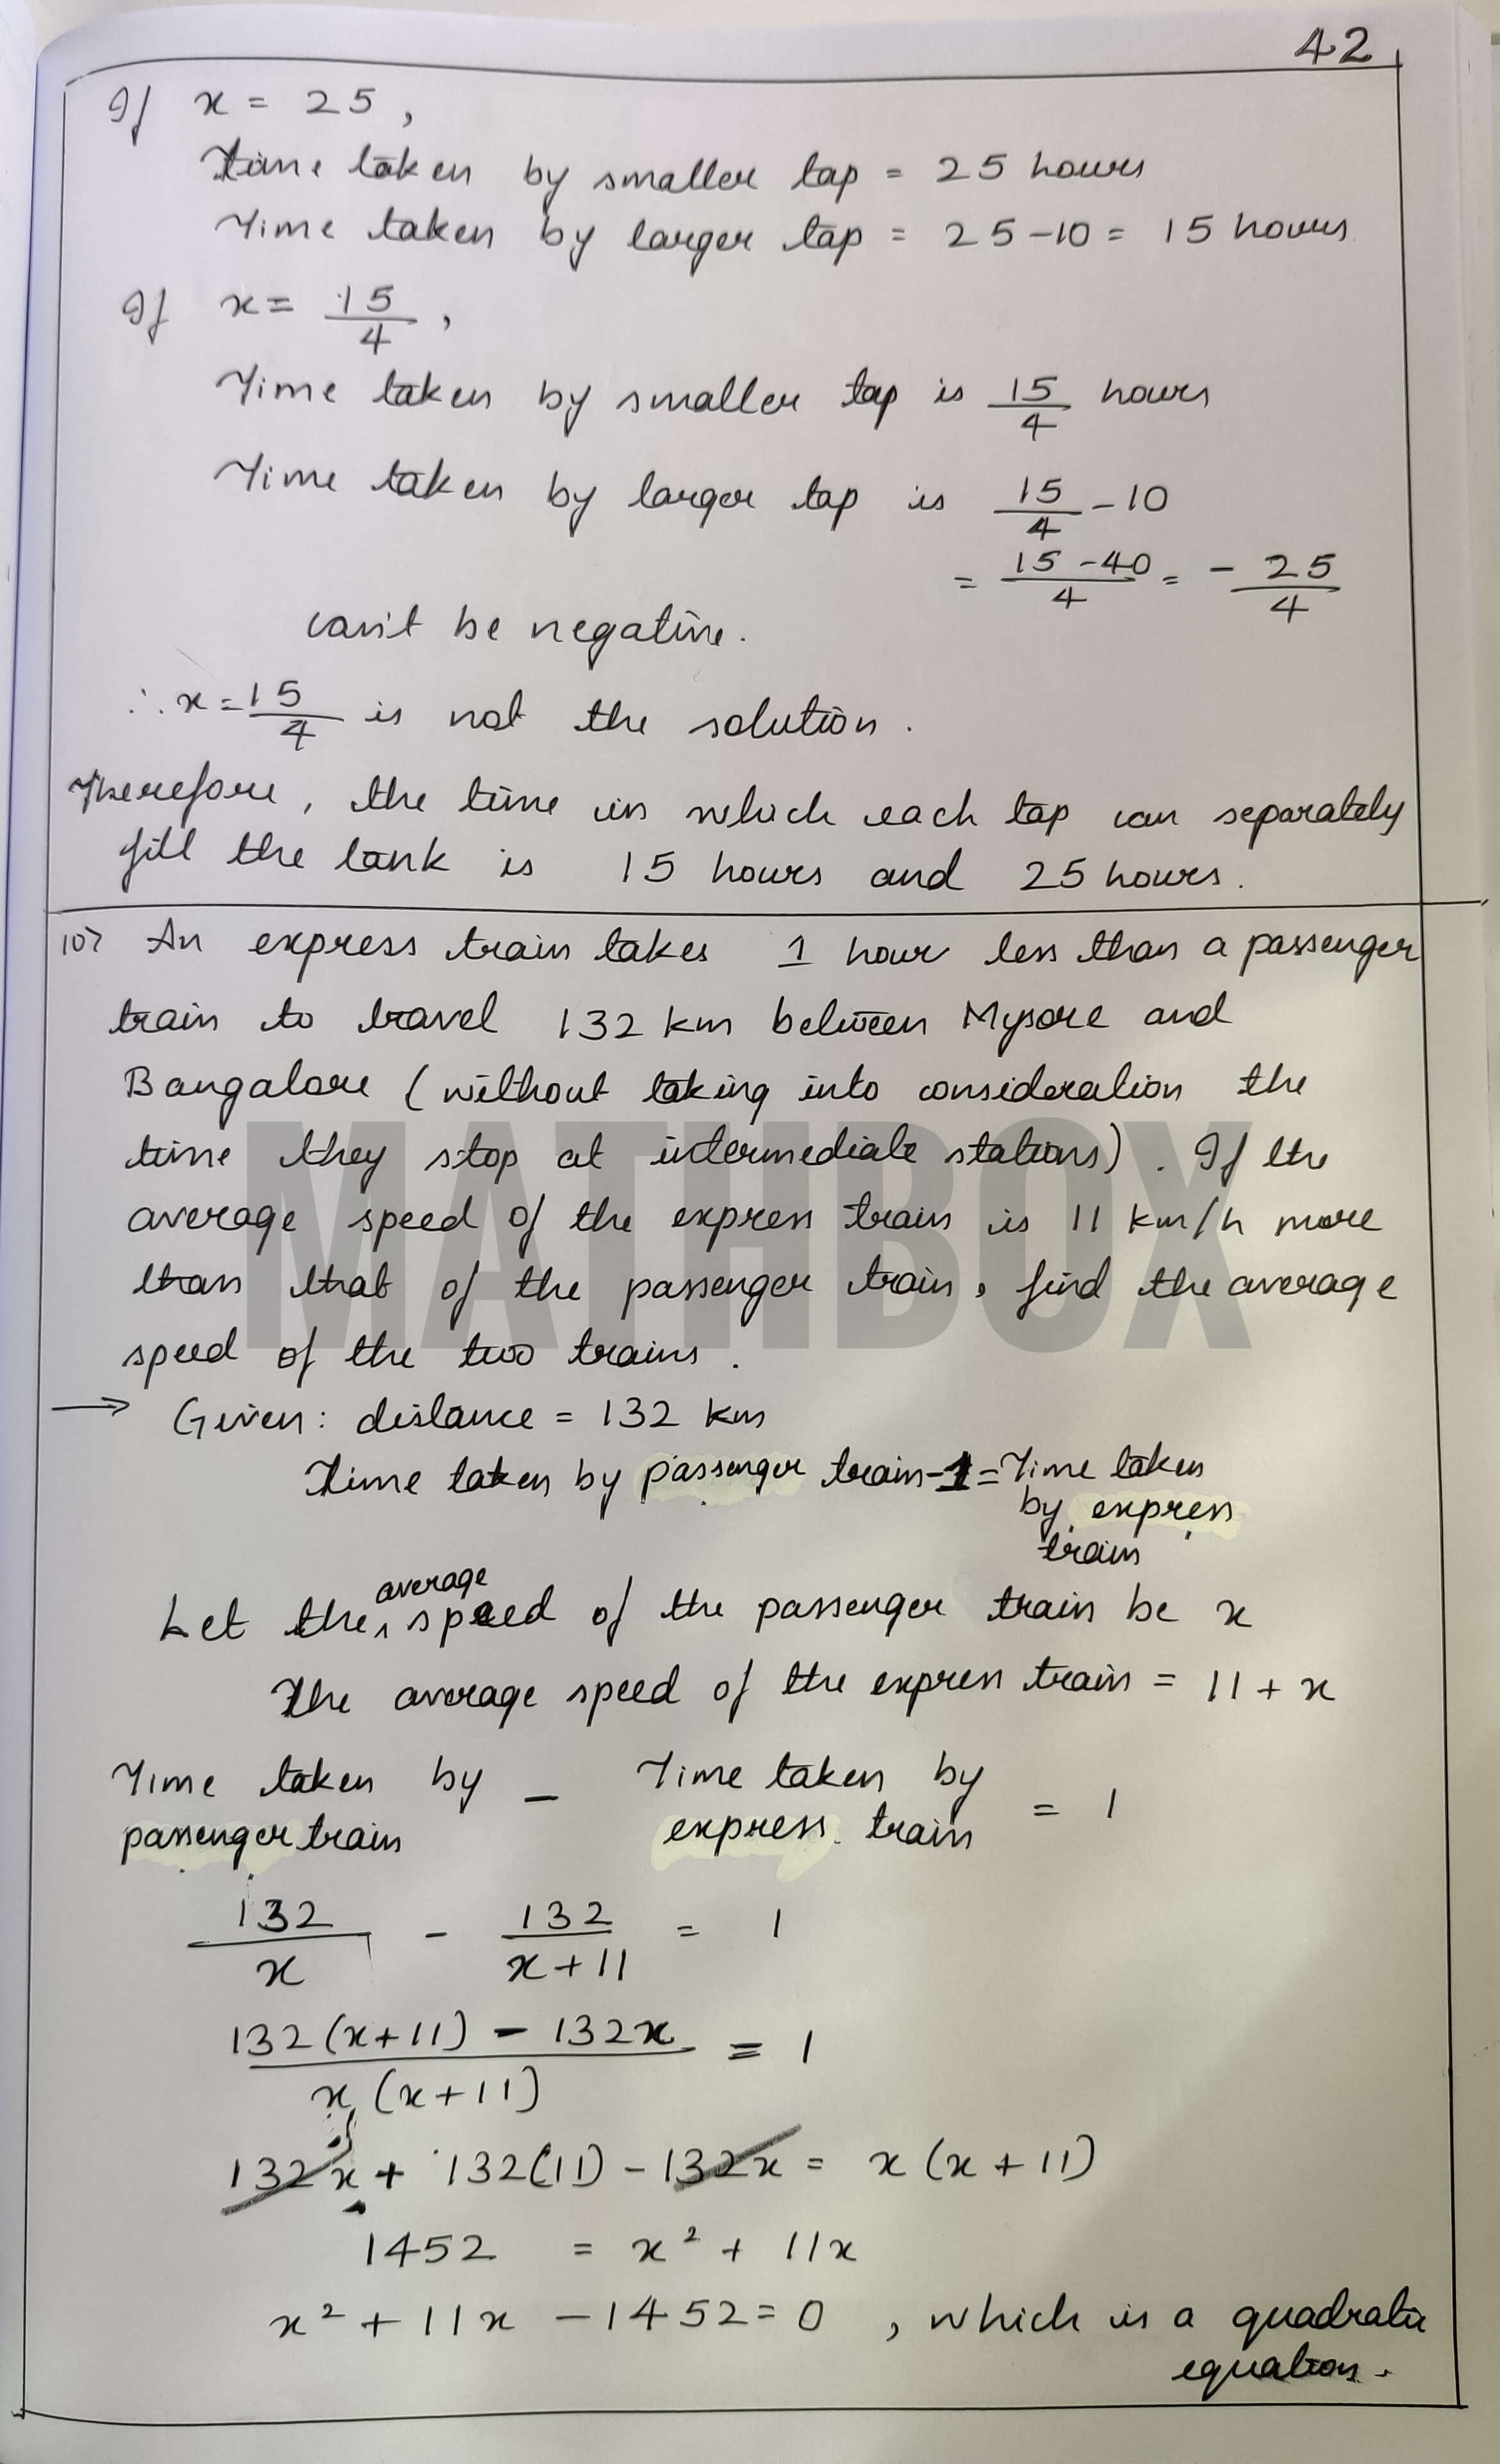 42
If x = 25,
Time taken by smaller tap = 25 hours
Time taken by larger tap = 25-10 = 15 hours
If x = 15/4,
Time taken by smaller tap is 15/4 hours
Time taken by larger tap is 15/4 - 10
= 15-40/4 = - 25/4
can't be negative.
∴ x = 15/4 is not the solution.
Therefore, the time in which each tap can separately
fill the tank is 15 hours and 25 hours.
10) An express train takes 1 hour less than a passenger
train to travel 132 km between Mysore and
Bangalore (without taking into consideration the
time they stop at intermediate stations). If the
average speed of the express train is 11 km/h more
than that of the passenger train, find the average
speed of the two trains.
MATHBOX
→ Given: distance = 132 km
Time taken by passenger train-1 = Time taken
by express
train
Let the average speed of the passenger train be x
The average speed of the express train = 11 + x
Time taken by passenger train - Time taken by express train = 1
132/x - 132/x+11 = 1
132(x+11) - 132x/x(x+11) = 1
132x + 132(11) - 132x = x(x+11)
1452 = x² + 11x
x² + 11x - 1452 = 0, which is a quadratic
equation.